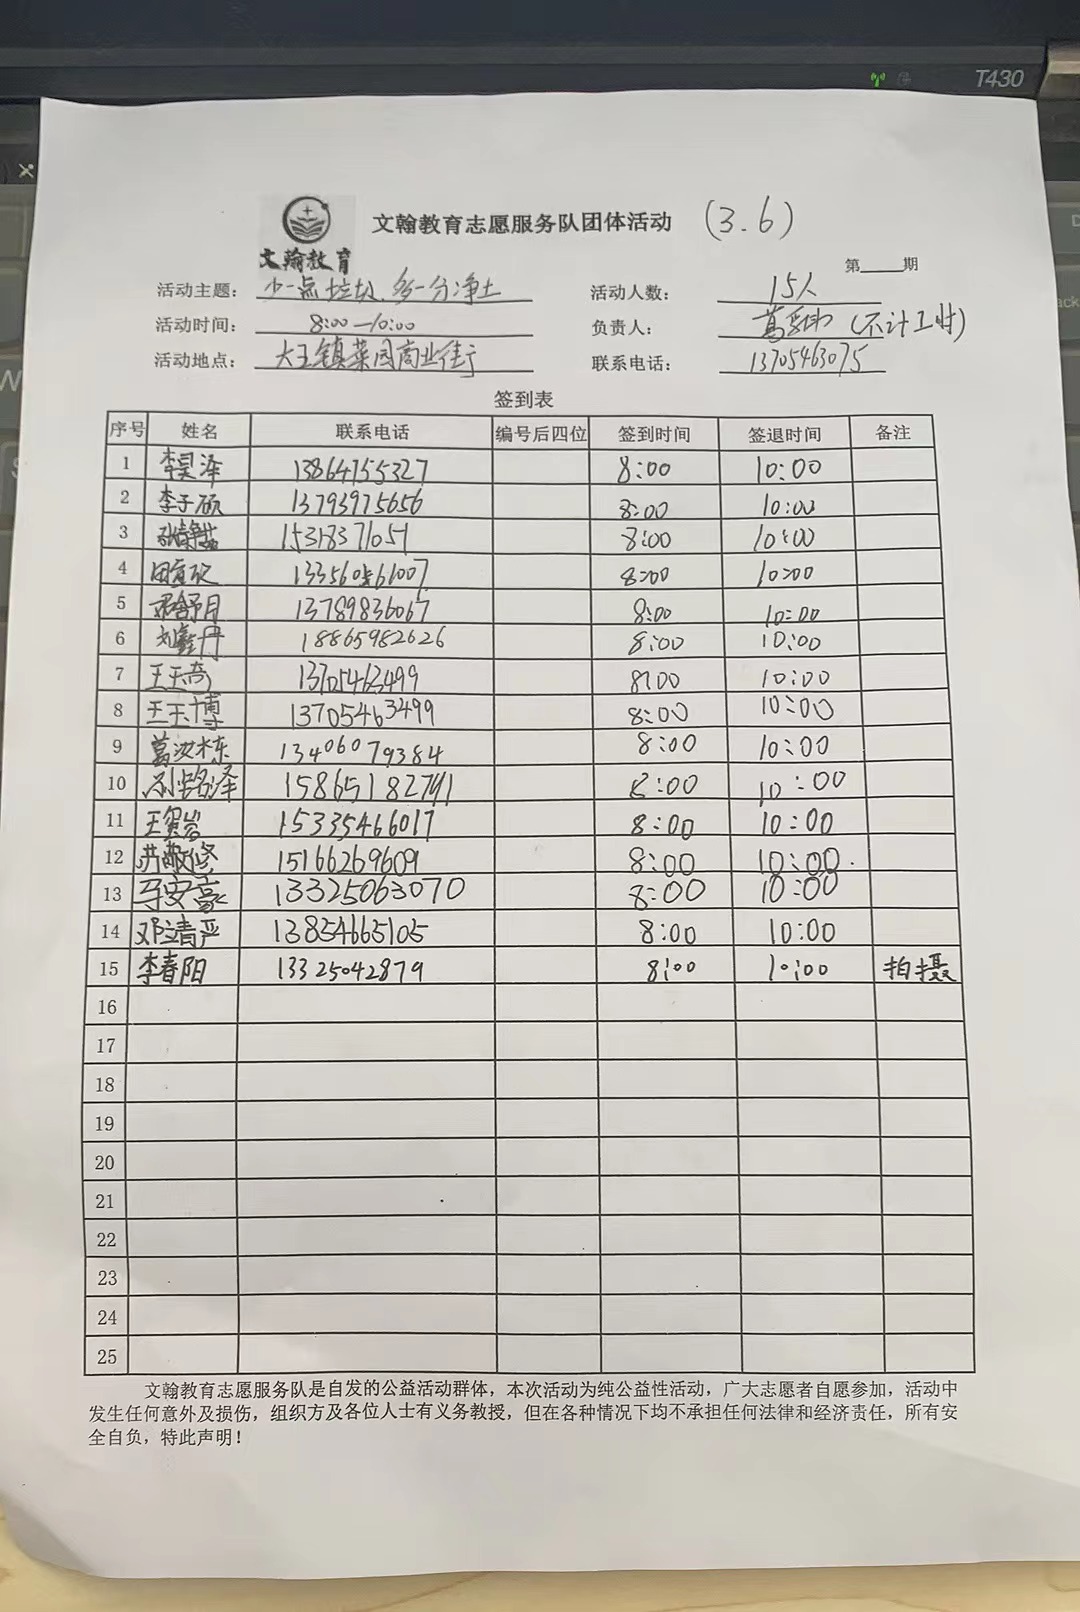 T430
文翰教育
文翰教育志愿服务队团体活动 (3.6)
第____期
活动主题: 少一点垃圾、多一分净土 活动人数: 15人
活动时间: 8:00—10:00 负责人: (不计工时)
活动地点: 大王镇菜园商业街 联系电话: 13705463075
签到表
序号 姓名 联系电话 编号后四位 签到时间 签退时间 备注
1 李昊泽 13864755327 8:00 10:00
2 李子硕 13793975656 8:00 10:00
3 15318371051 8:00 10:00
4 8:00 10:00
5 13789836067 8:00 10:00
6 刘鑫丹 18865982626 8:00 10:00
7 王玉奇 13705463499 8:00 10:00
8 王玉博 13705463499 8:00 10:00
9 葛汝栋 13406079384 8:00 10:00
10 15865182791 8:00 10:00
11 王贺岩 15335466017 8:00 10:00
12 15166269609 8:00 10:00
13 马安豪 13325063070 8:00 10:00
14 邓靖严 13854665105 8:00 10:00
15 李春阳 13325042879 8:00 10:00 拍摄
16
17
18
19
20
21
22
23
24
25
文翰教育志愿服务队是自发的公益活动群体，本次活动为纯公益性活动，广大志愿者自愿参加，活动中
发生任何意外及损伤，组织方及各位人士有义务教授，但在各种情况下均不承担任何法律和经济责任，所有安
全自负，特此声明！